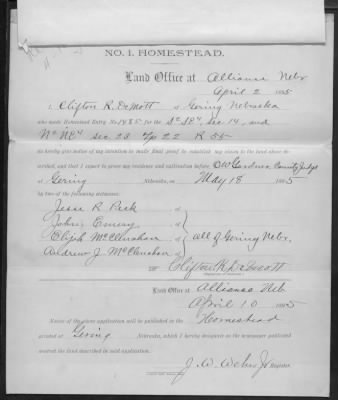 NO. 1. HOMESTEAD.
Land Office at Alliance Nebr
April 2 1895
I, Clifton R. DeMott of Gering Nebraska
who made Homestead Entry No. 1485 for the S½ SE¼ Sec 14, and
N½ NE¼ Sec 23 Tp 22 R 55
do hereby give notice of my intention to make final proof to establish my claim to the land above de-
scribed, and that I expect to prove my residence and cultivation before O W Gardner County Judge
at Gering Nebraska, on May 18 1895
by two of the following witnesses:
Jesse R. Peck of
John Emery of
Elijah McClenahan of all of Gering Nebr.
Andrew J. McClenahan of
Clifton R. DeMott
Land Office at Alliance Neb
April 10 1895
Notice of the above application will be published in the Homestead
printed at Gering Nebraska, which I hereby designate as the newspaper published
nearest the land described in said application.
J. W. Wehn Jr Register